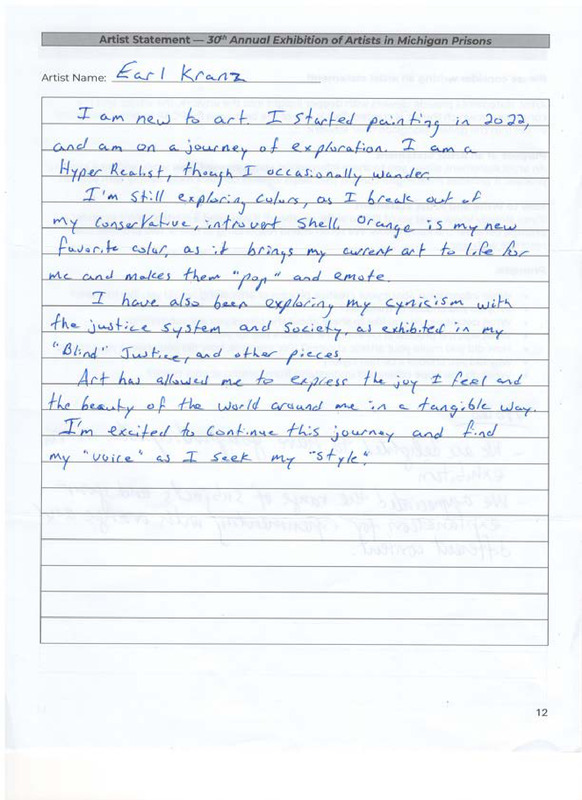 Artist Statement — 30th Annual Exhibition of Artists in Michigan Prisons
Artist Name: Earl Kranz
I am new to art. I started painting in 2022,
and am on a journey of exploration. I am a
Hyper Realist, though I occasionally wander.
I'm still exploring colors, as I break out of
my conservative, introvert shell. Orange is my new
favorite color, as it brings my current art to life for
me and makes them "pop" and emote.
I have also been exploring my cynicism with
the justice system and society, as exhibited in my
"Blind" Justice, and other pieces.
Art has allowed me to express the joy I feel and
the beauty of the world around me in a tangible way.
I'm excited to continue this journey and find
my "voice" as I seek my "style".
12